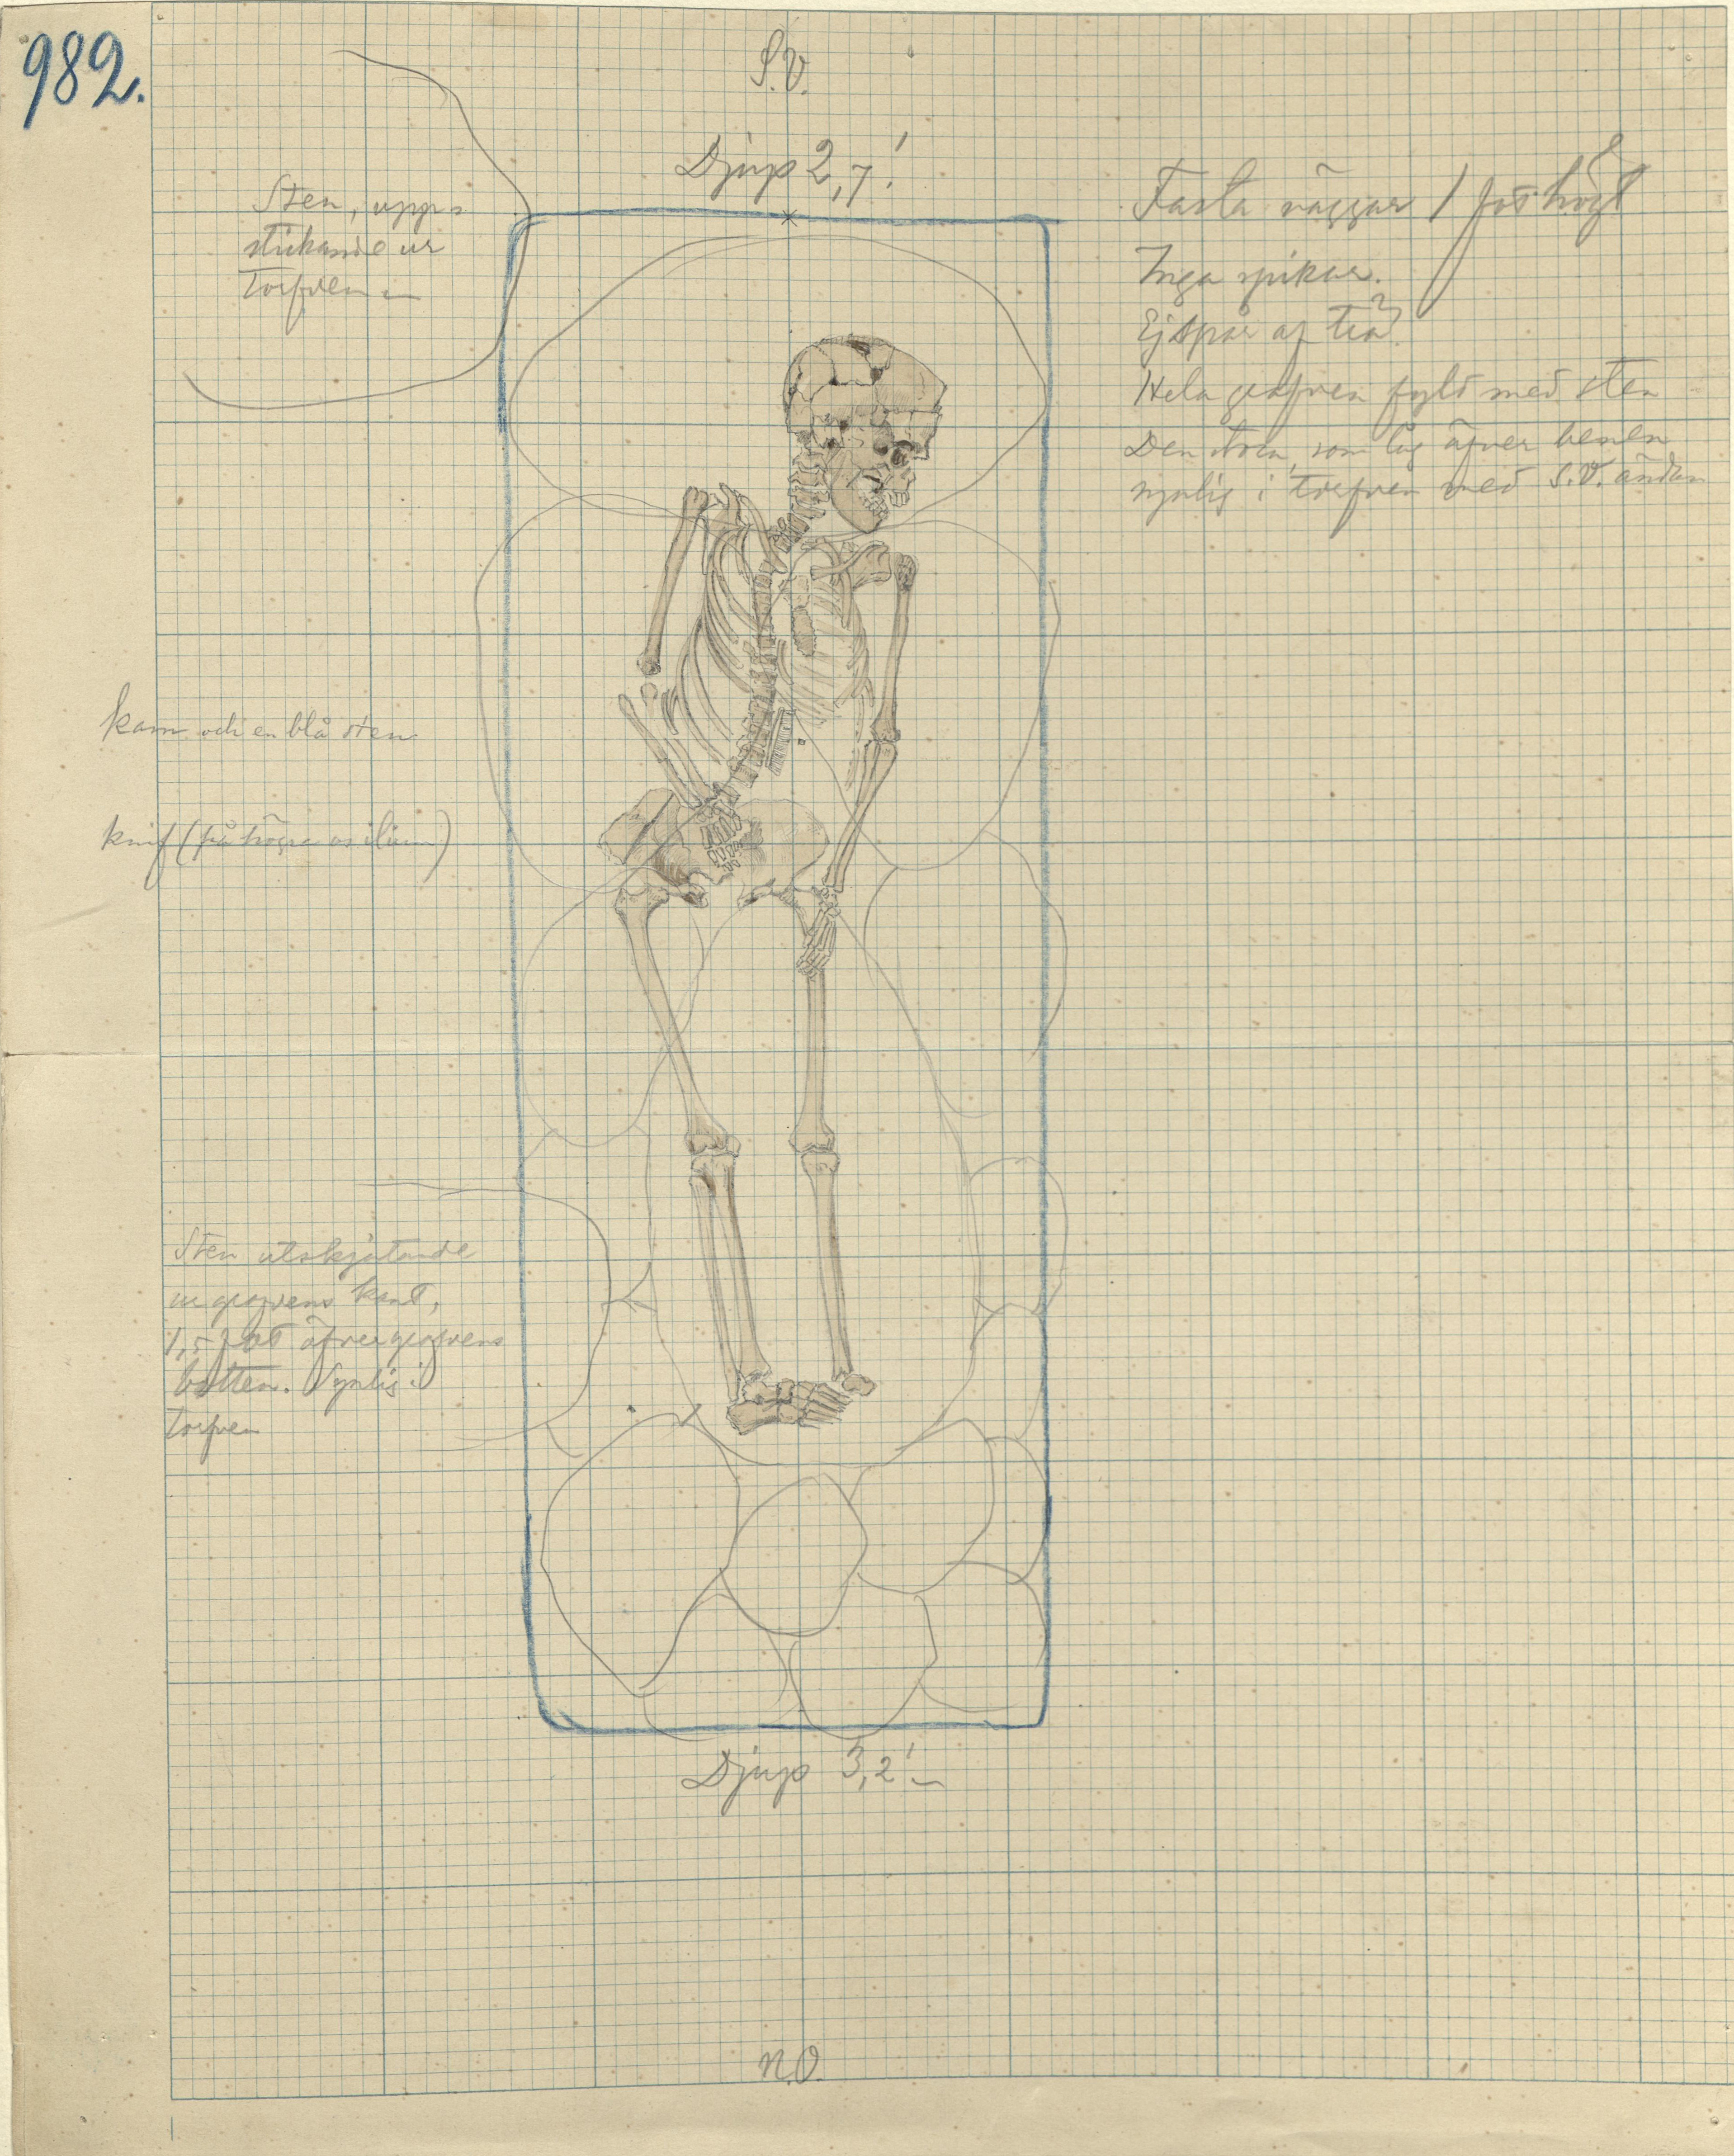 982.
S.V.
Djup 2,7'.
Sten, upp-
stickande ur
torfven
Fasta väggar 1 fot högt
Inga spikar.
Ej spår af trä.
Hela grafven fyld med sten
Den stora, som låg öfver benen
synlig i torfven med S.V. ändan
kam och en blå sten
knif (på högra os ilium)
Sten utskjutande
ur grafvens kant,
1,5 fot öfver grafvens
botten. Synlig i
torfven
Djup 3,2'
N.O.